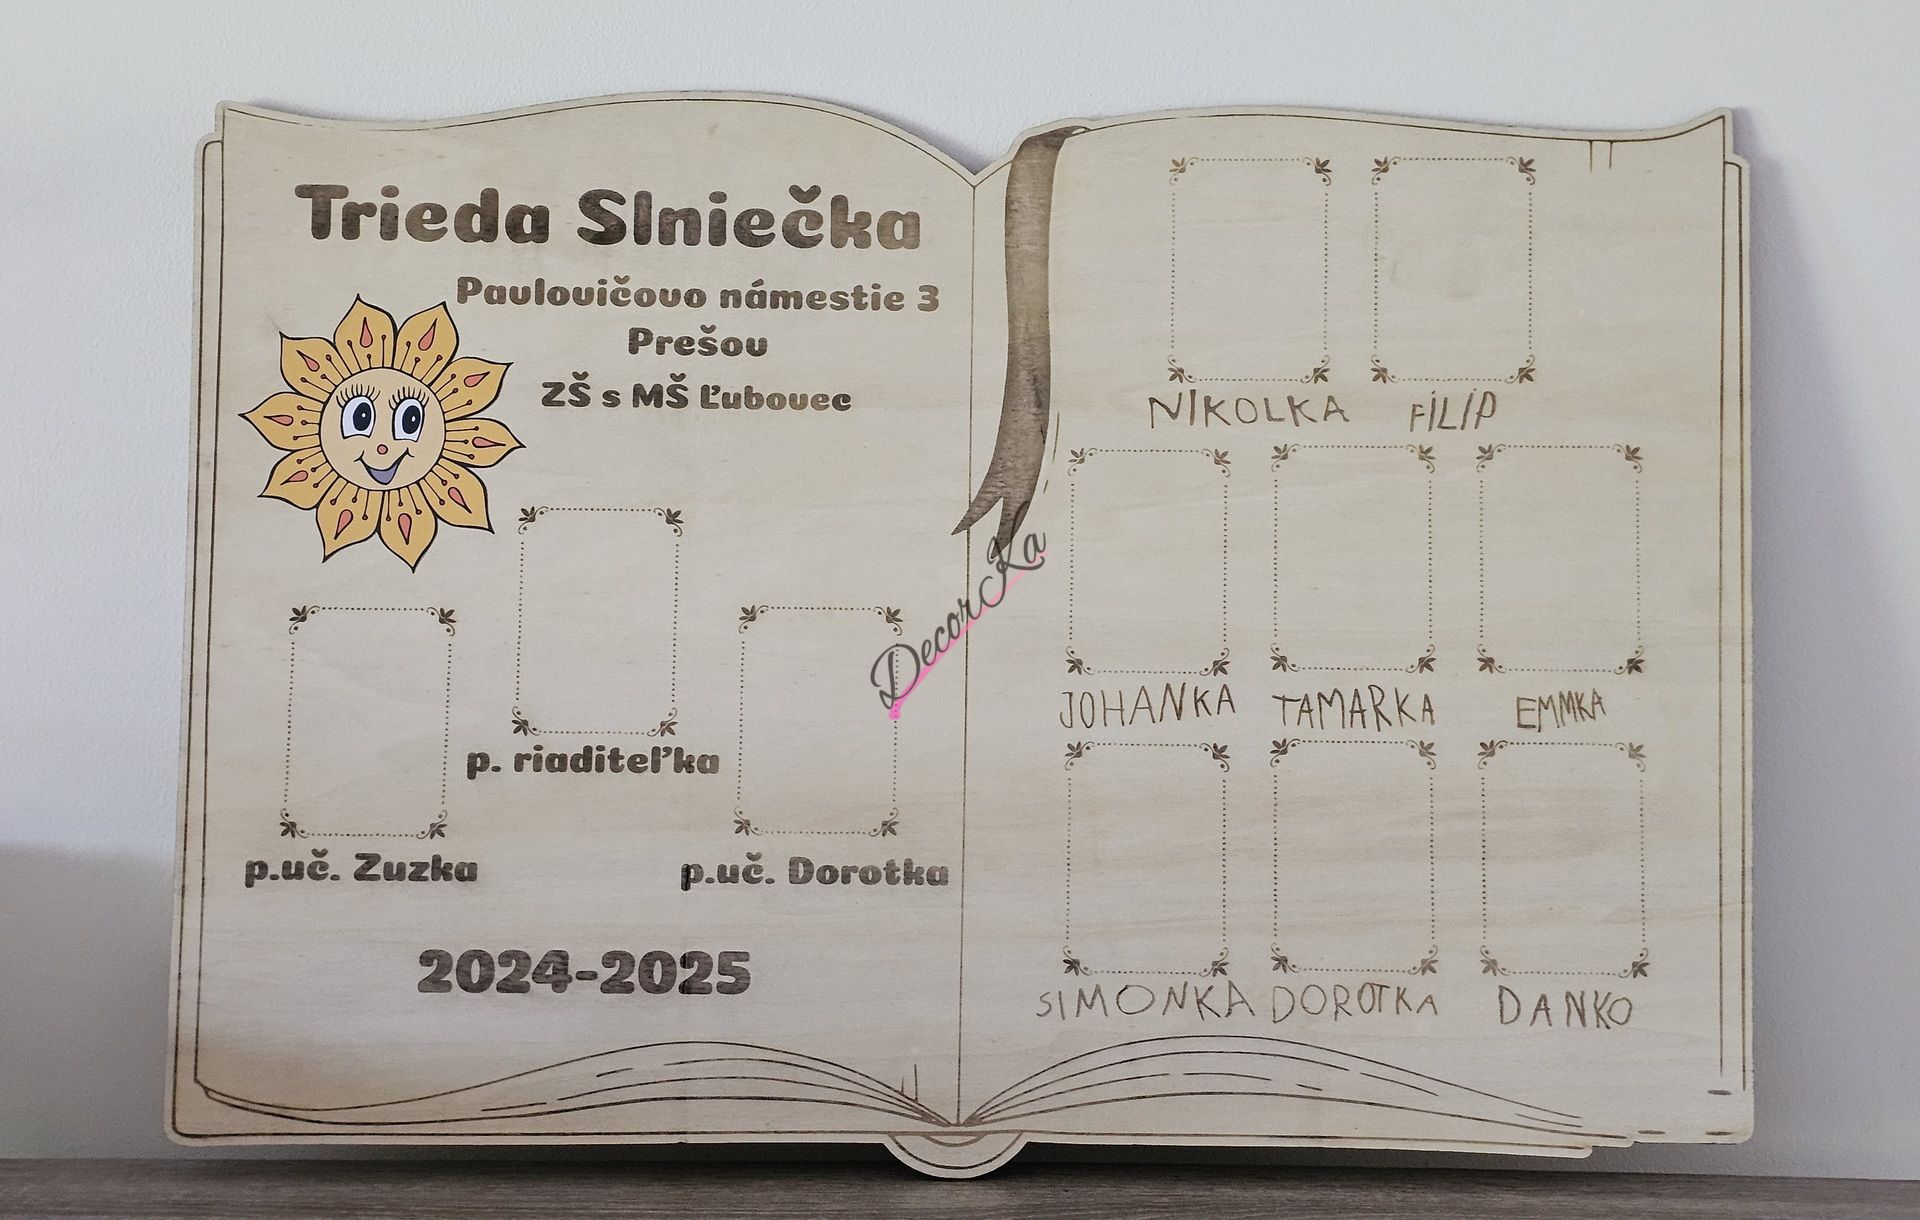 Trieda Slniečka
Pavlovičovo námestie 3
Prešov
ZŠ s MŠ Ľubovec
p. riaditeľka
p.uč. Zuzka
p.uč. Dorotka
2024-2025
DecorKa
NIKOLKA FILIP
JOHANKA TAMARKA EMMKA
SIMONKA DOROTKA DANKO